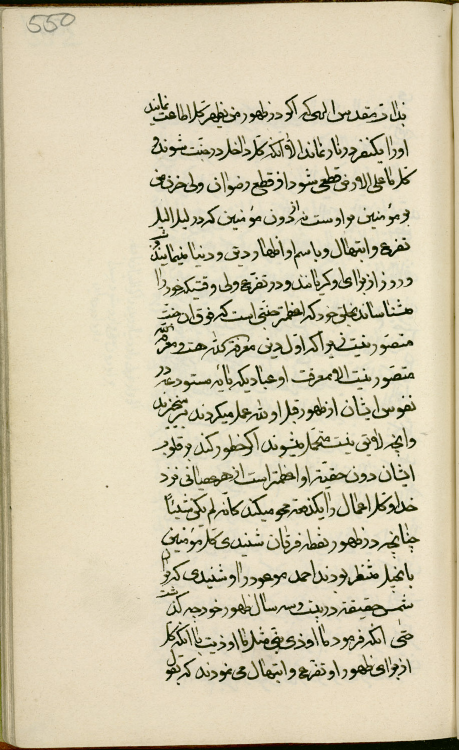 بذات مقدس الهی که اگر در ظهور من یظهر کل اطاعت نمایند
او را یکنفر در نار نماند الا آنکه کل داخل در جنت شوند و
کل ما علی الارض قطعهٔ شود از قطع رضوان ولی حزن من
بر مؤمنین بر اوست نه از دون مؤمنین که در لیل الیل
تضرع و ابتهال و باسم او اظهار دین و دنیا مینمایند
و روز از برای او گریانند و در تضرع ولی وقتیکه خود را
میشناساند بخلق خود که اعظمتر جنتی است که فوق آن جنت
متصور نیست زیرا که اول دین معرفة الله هست و معرفة الله
متصور نیست الا بمعرفت او عبادیکه بآیه مستودعه در
نفوس ایشان از ظهور قبل او لله عمل میکردند متحرزند
و آنچه لایق نیست متحمل میشوند اگر خطور کند بر قلوب
ایشان دون حقیة او اعظمتر است از هر عصیانی نزد
خدا و کل اعمال را یکدفعه محو میکند کانه لم یک شیئاً
چنانچه در ظهور نقطه فرقان شنیدی کل مؤمنین
بانجیل منتظر بودند احمد موعود را و شنیدی که بر آن
شمس حقیقة در بیست و سه سال ظهور خود چه گذشت
حتی آنکه فرمود ما اوذی نبی مثل ما اوذیت با آنکه کل
از برای ظهور او تضرع و ابتهال می نمودند که بقول
550